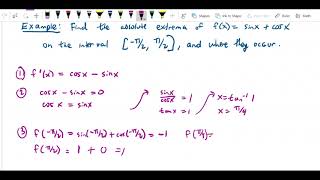 Example: Find the absolute extrema of f(x) = sinx + cosx
on the interval [-π/2, π/2], and where they occur.
① f'(x) = cosx - sinx
② cosx - sinx = 0
cosx = sinx
sinx/cosx = 1
tanx = 1
x = tan⁻¹ 1
x = π/4
③ f(-π/2) = sin(-π/2) + cos(-π/2) = -1 f(π/4) =
f(π/2) = 1 + 0 = 1